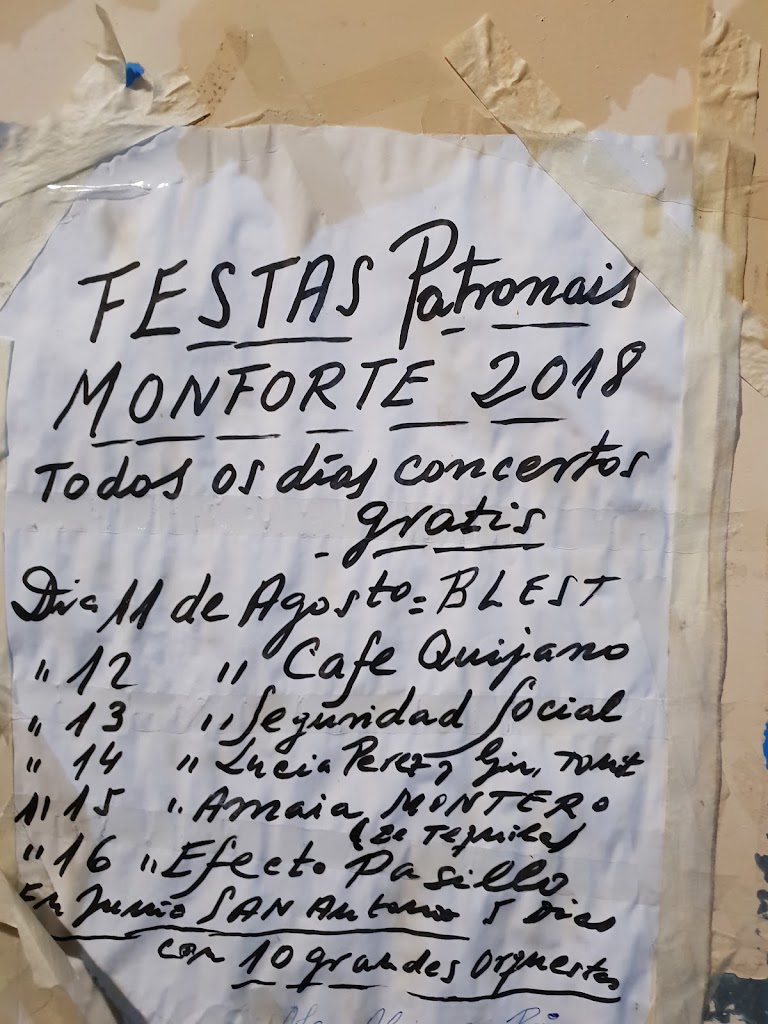 FESTAS Patronais
MONFORTE 2018
Todos os días concertos
gratis
Dia 11 de Agosto = BLEST
" 12 " Cafe Quijano
" 13 " Seguridad Social
" 14 " Lucia Perez y Gin, Tonit
" 15 " Amaia MONTERO
" 16 " Efecto Pasillo
En Junio SAN Antonio 5 Dias
con 10 grandes Orquestas